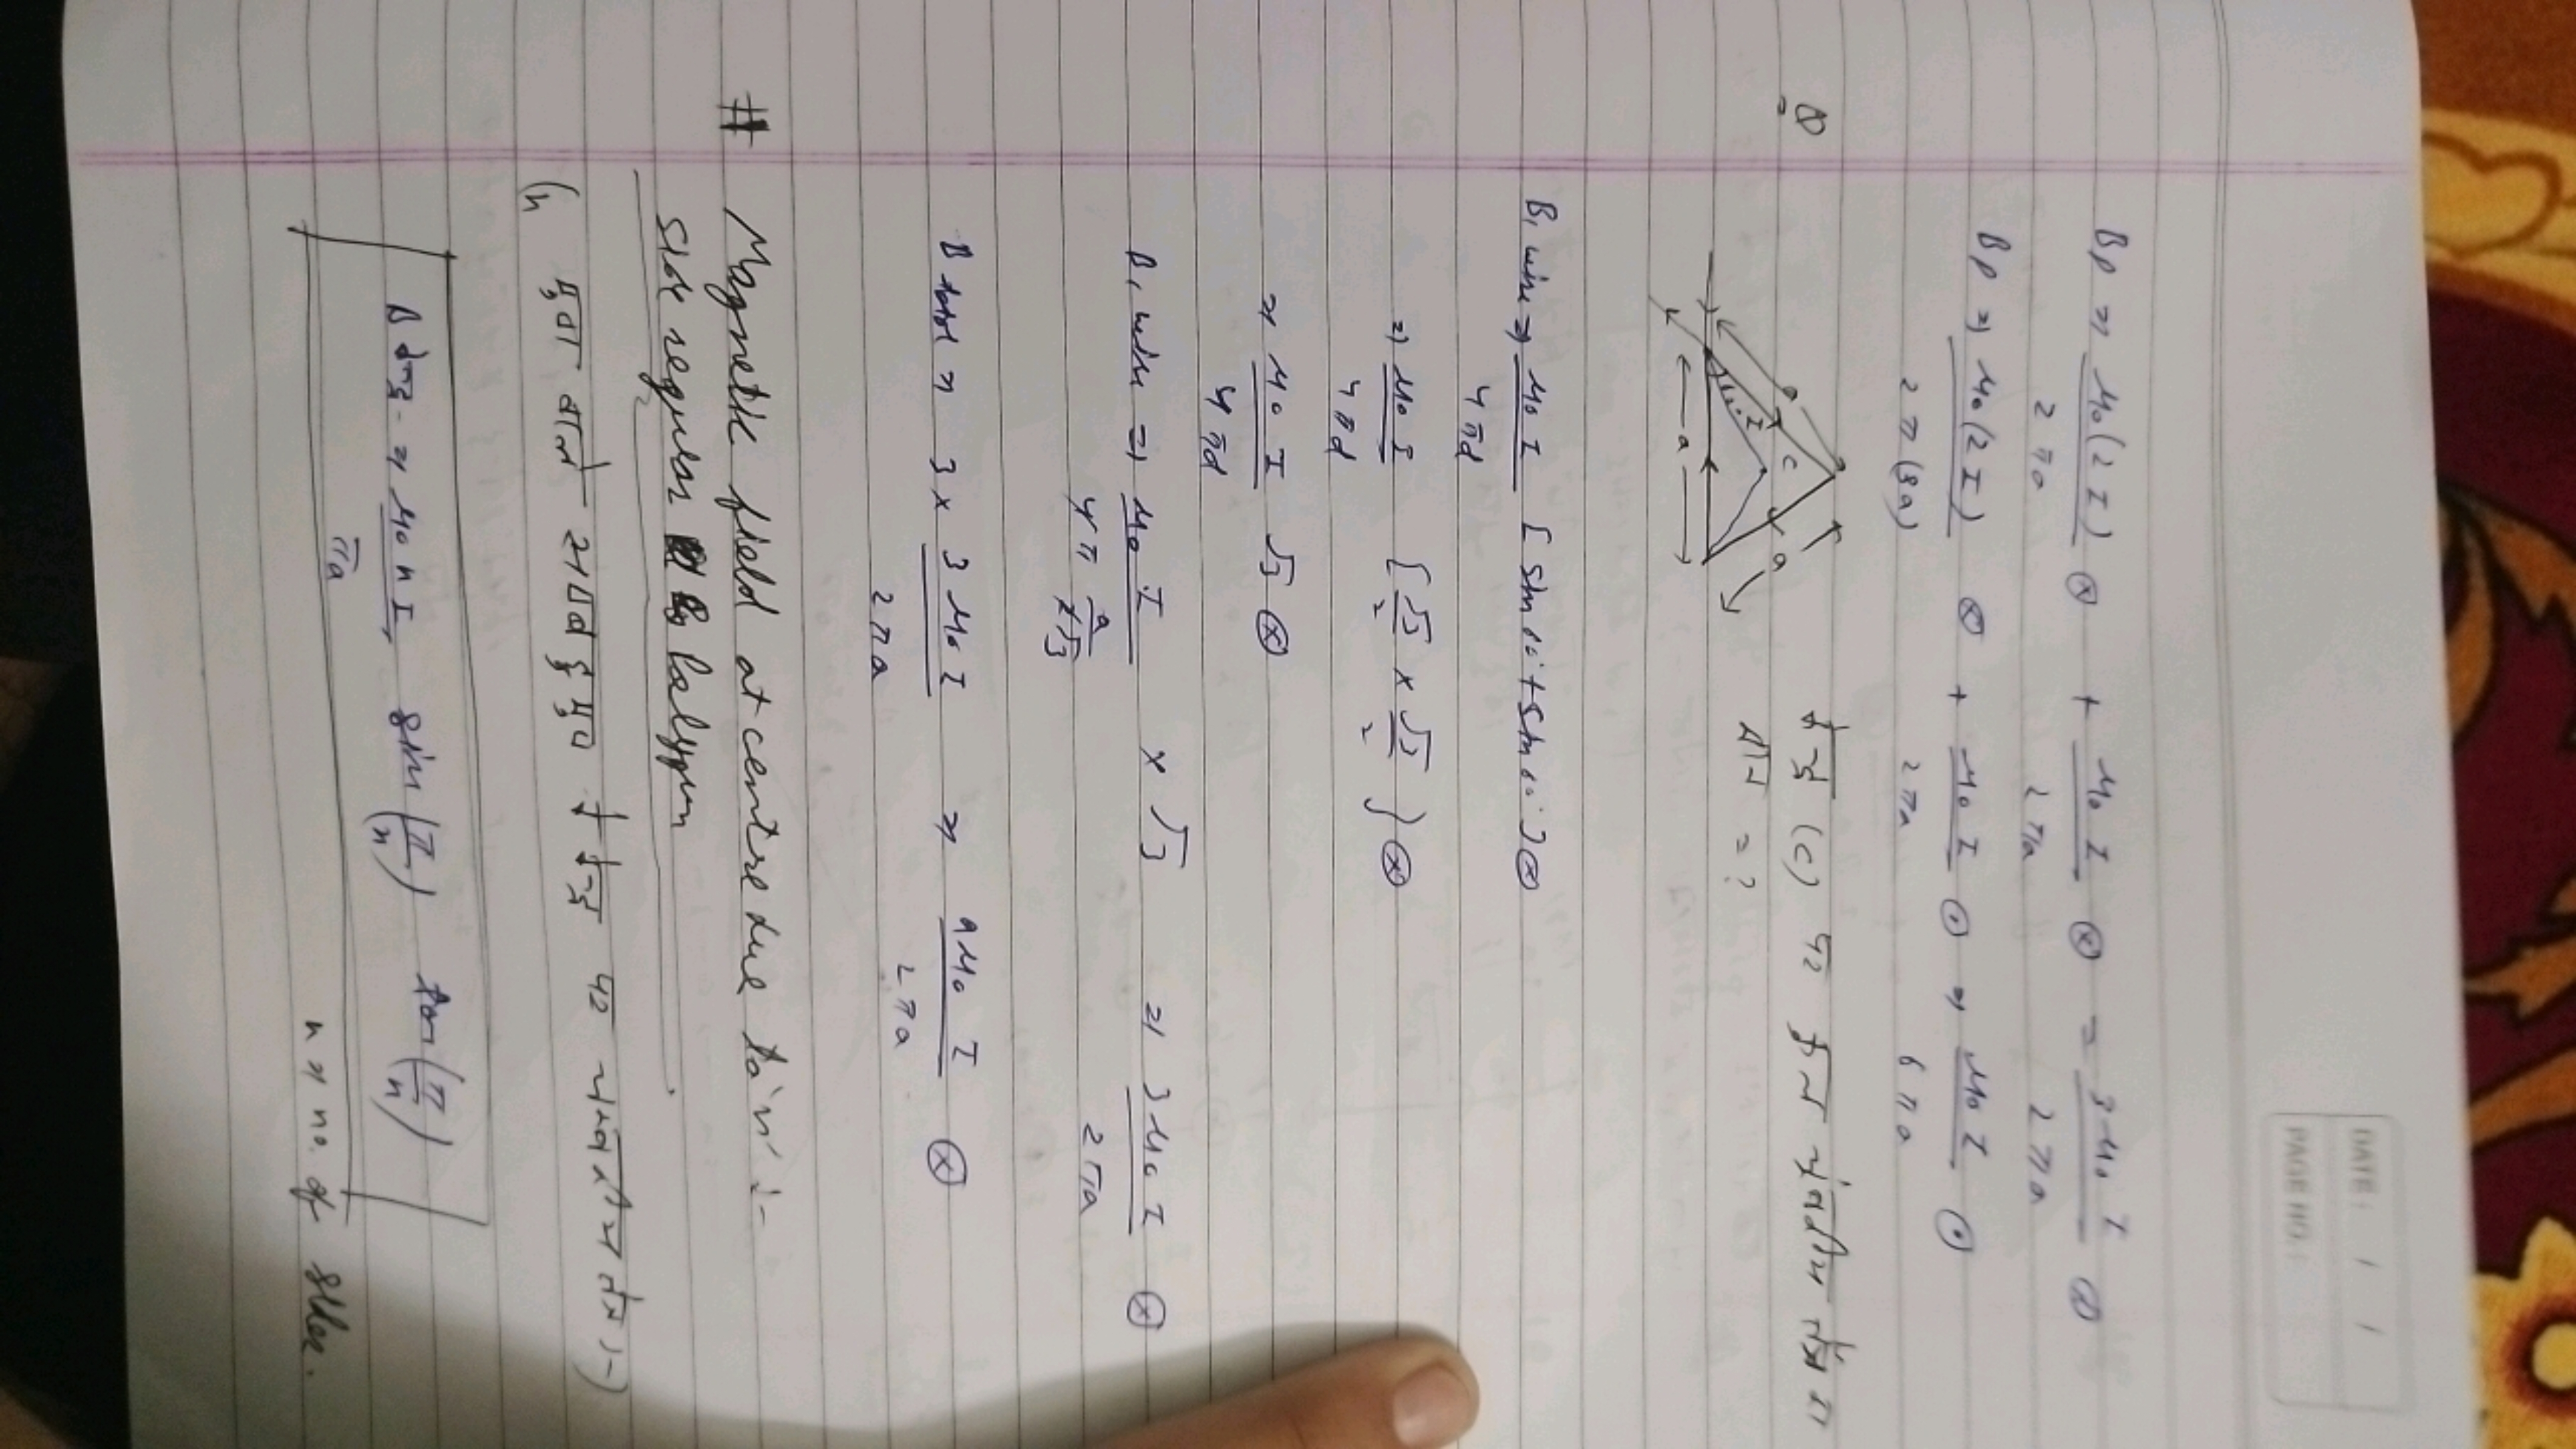 DATE: / /
PAGE NO.:
Bp ⇒ μ₀(2I)/2πa ⊗ + μ₀I/2πa ⊗ = 3μ₀I/2πa ⊗
Bp ⇒ μ₀(2I)/2π(3a) ⊗ + μ₀I/2πa ⊙ ⇒ μ₀I/6πa ⊙
Q केन्द्र (C) पर कुल चुंबकीय क्षेत्र का
मान = ?
a I C a
a
B₁ wire ⇒ μ₀I/4πd [sin 60° + sin 60°] ⊗
⇒ μ₀I/4πd [√3/2 × √3/2] ⊗
⇒ μ₀I/4πd √3 ⊗
B₁ wire ⇒ μ₀I/4π a/2√3 × √3 ⇒ 3μ₀I/2πa ⊗
B total ⇒ 3 × 3μ₀I/2πa ⇒ 9μ₀I/2πa ⊗
# Magnetic field at centre due to 'n' :-
side regular Polygon
(n भुजा वाले समबहुभुज के केन्द्र पर चुम्बकीय क्षेत्र :-)
B केन्द्र ⇒ μ₀nI/πa sin(π/n) tan(π/n)
n ⇒ no. of sides.